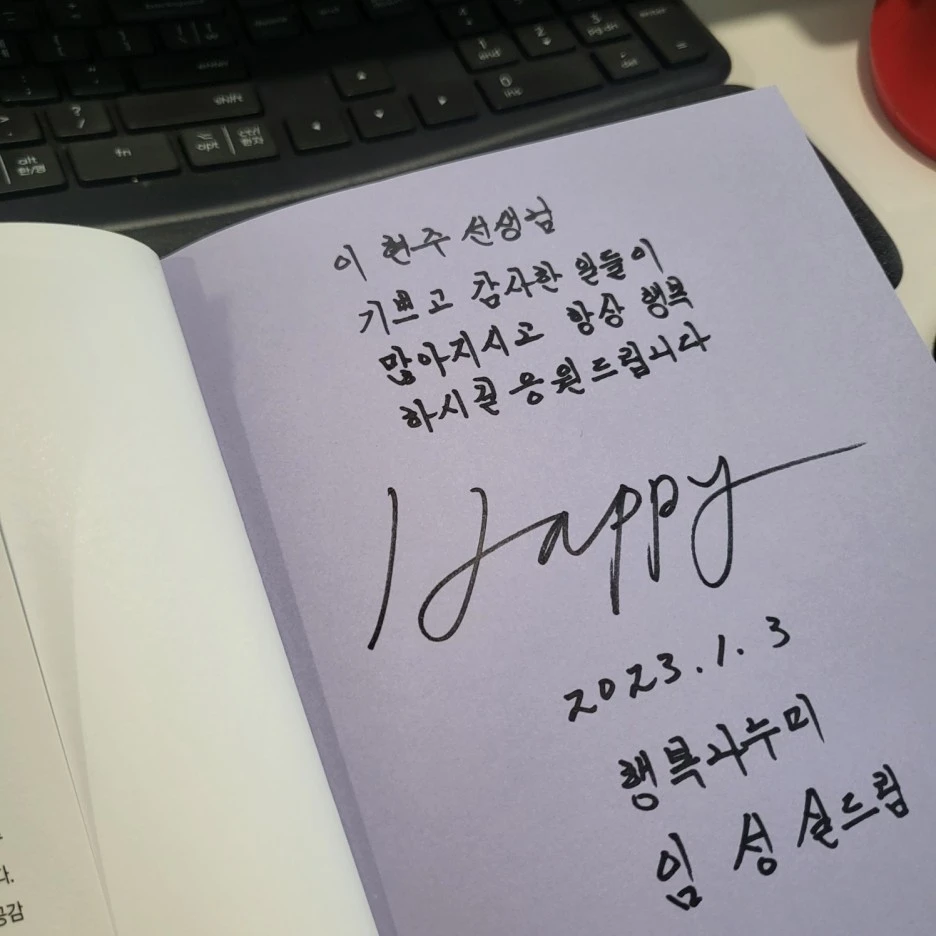 enter
shift
alt
한/영
fn
opt
ctrl
한자
1
2
3
pg dn
0
ins
del
이현주 선생님
기쁘고 감사한 일들이
많아지시고 항상 행복
하시길 응원드립니다
Happy
2023.1.3
행복나누미
임성실드림
다.
공감